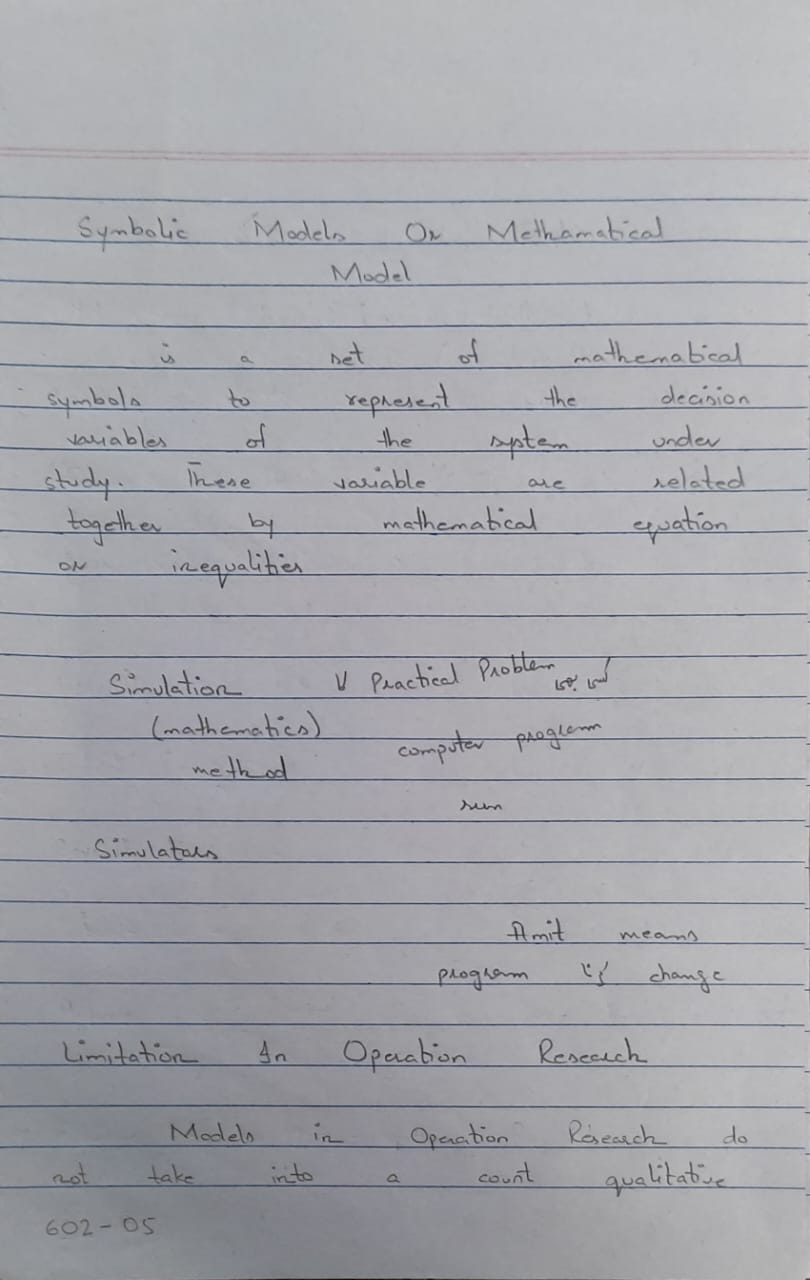 Symbolic Models Or Methamatical
Model
is a set of mathematical
symbols to represent the decision
variables of the system under
study. These variable are related
together by mathematical equation
or inequalities
Simulation Practical Problem
(mathematics) computer program
method
run
Simulators
Amit means
program change
Limitation In Operation Research
Models in Operation Research do
not take into a count qualitative
602-05